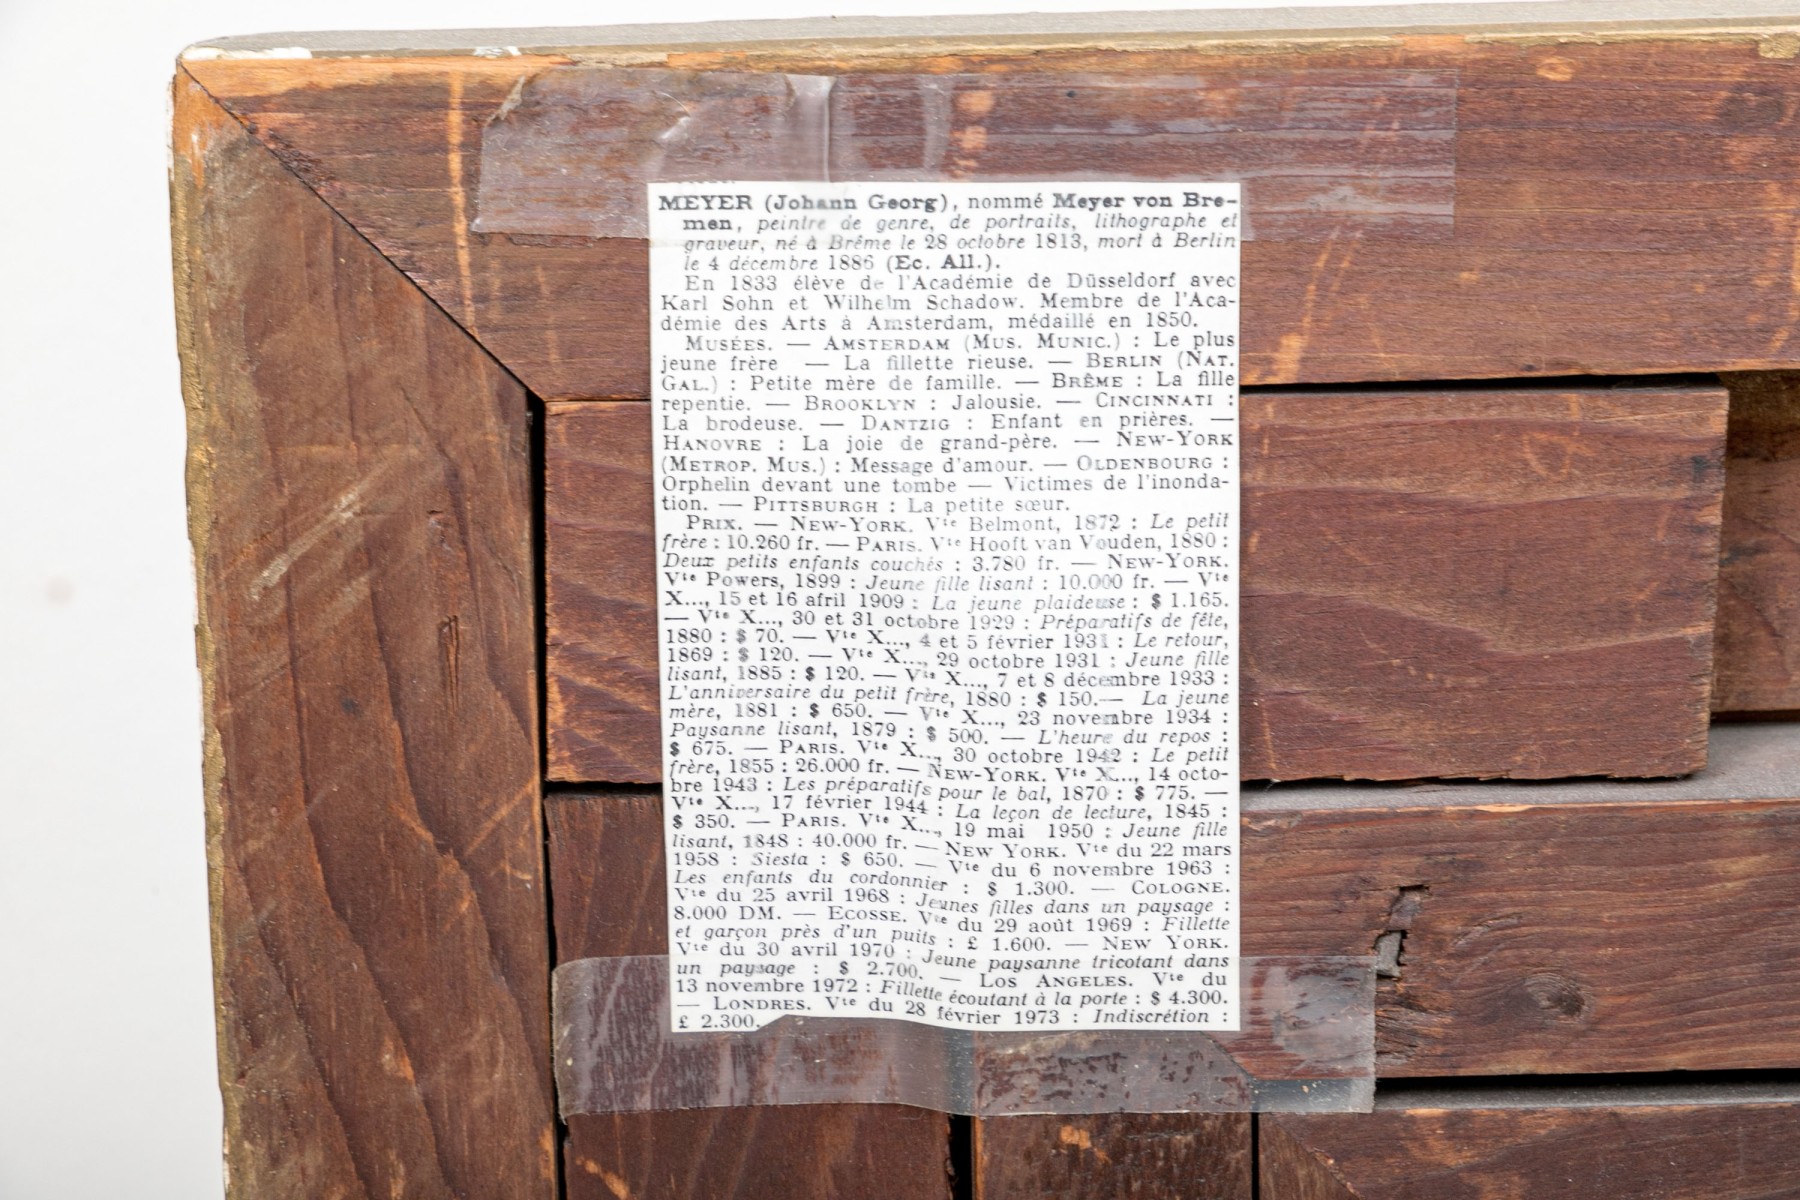 MEYER (Johann Georg), nommé Meyer von Bre-
men, peintre de genre, de portraits, lithographe et
graveur, né à Brême le 28 octobre 1813, mort à Berlin
le 4 décembre 1886 (Ec. All.).
En 1833 élève de l'Académie de Düsseldorf avec
Karl Sohn et Wilhelm Schadow. Membre de l'Aca-
démie des Arts à Amsterdam, médaillé en 1850.
MUSÉES. — AMSTERDAM (MUS. MUNIC.) : Le plus
jeune frère — La fillette rieuse. — BERLIN (NAT.
GAL.) : Petite mère de famille. — BRÊME : La fille
repentie. — BROOKLYN : Jalousie. — CINCINNATI :
La brodeuse. — DANTZIG : Enfant en prières. —
HANOVRE : La joie de grand-père. — NEW-YORK
(METROP. MUS.) : Message d'amour. — OLDENBOURG :
Orphelin devant une tombe — Victimes de l'inonda-
tion. — PITTSBURGH : La petite sœur.
PRIX. — NEW-YORK. Vte Belmont, 1872 : Le petit
frère : 10.260 fr. — PARIS. Vte Hooft van Vouden, 1880 :
Deux petits enfants couchés : 3.780 fr. — NEW-YORK.
Vte Powers, 1899 : Jeune fille lisant : 10.000 fr. — Vte
X..., 15 et 16 afril 1909 : La jeune plaideuse : $ 1.165.
— Vte X..., 30 et 31 octobre 1929 : Préparatifs de fête,
1880 : $ 70. — Vte X..., 4 et 5 février 1931 : Le retour,
1869 : $ 120. — Vte X..., 29 octobre 1931 : Jeune fille
lisant, 1885 : $ 120. — Vte X..., 7 et 8 décembre 1933 :
L'anniversaire du petit frère, 1880 : $ 150.— La jeune
mère, 1881 : $ 650. — Vte X..., 23 novembre 1934 :
Paysanne lisant, 1879 : $ 500. — L'heure du repos :
$ 675. — PARIS. Vte X..., 30 octobre 1942 : Le petit
frère, 1855 : 26.000 fr. — NEW-YORK. Vte X..., 14 octo-
bre 1943 : Les préparatifs pour le bal, 1870 : $ 775. —
Vte X..., 17 février 1944 : La leçon de lecture, 1845 :
$ 350. — PARIS. Vte X..., 19 mai 1950 : Jeune fille
lisant, 1848 : 40.000 fr. — NEW YORK. Vte du 22 mars
1958 : Siesta : $ 650. — Vte du 6 novembre 1963 :
Les enfants du cordonnier : $ 1.300. — COLOGNE.
Vte du 25 avril 1968 : Jeunes filles dans un paysage :
8.000 DM. — ECOSSE. Vte du 29 août 1969 : Fillette
et garçon près d'un puits : £ 1.600. — NEW YORK.
Vte du 30 avril 1970 : Jeune paysanne tricotant dans
un paysage : $ 2.700. — LOS ANGELES. Vte du
13 novembre 1972 : Fillette écoutant à la porte : $ 4.300.
— LONDRES. Vte du 28 février 1973 : Indiscrétion :
£ 2.300.